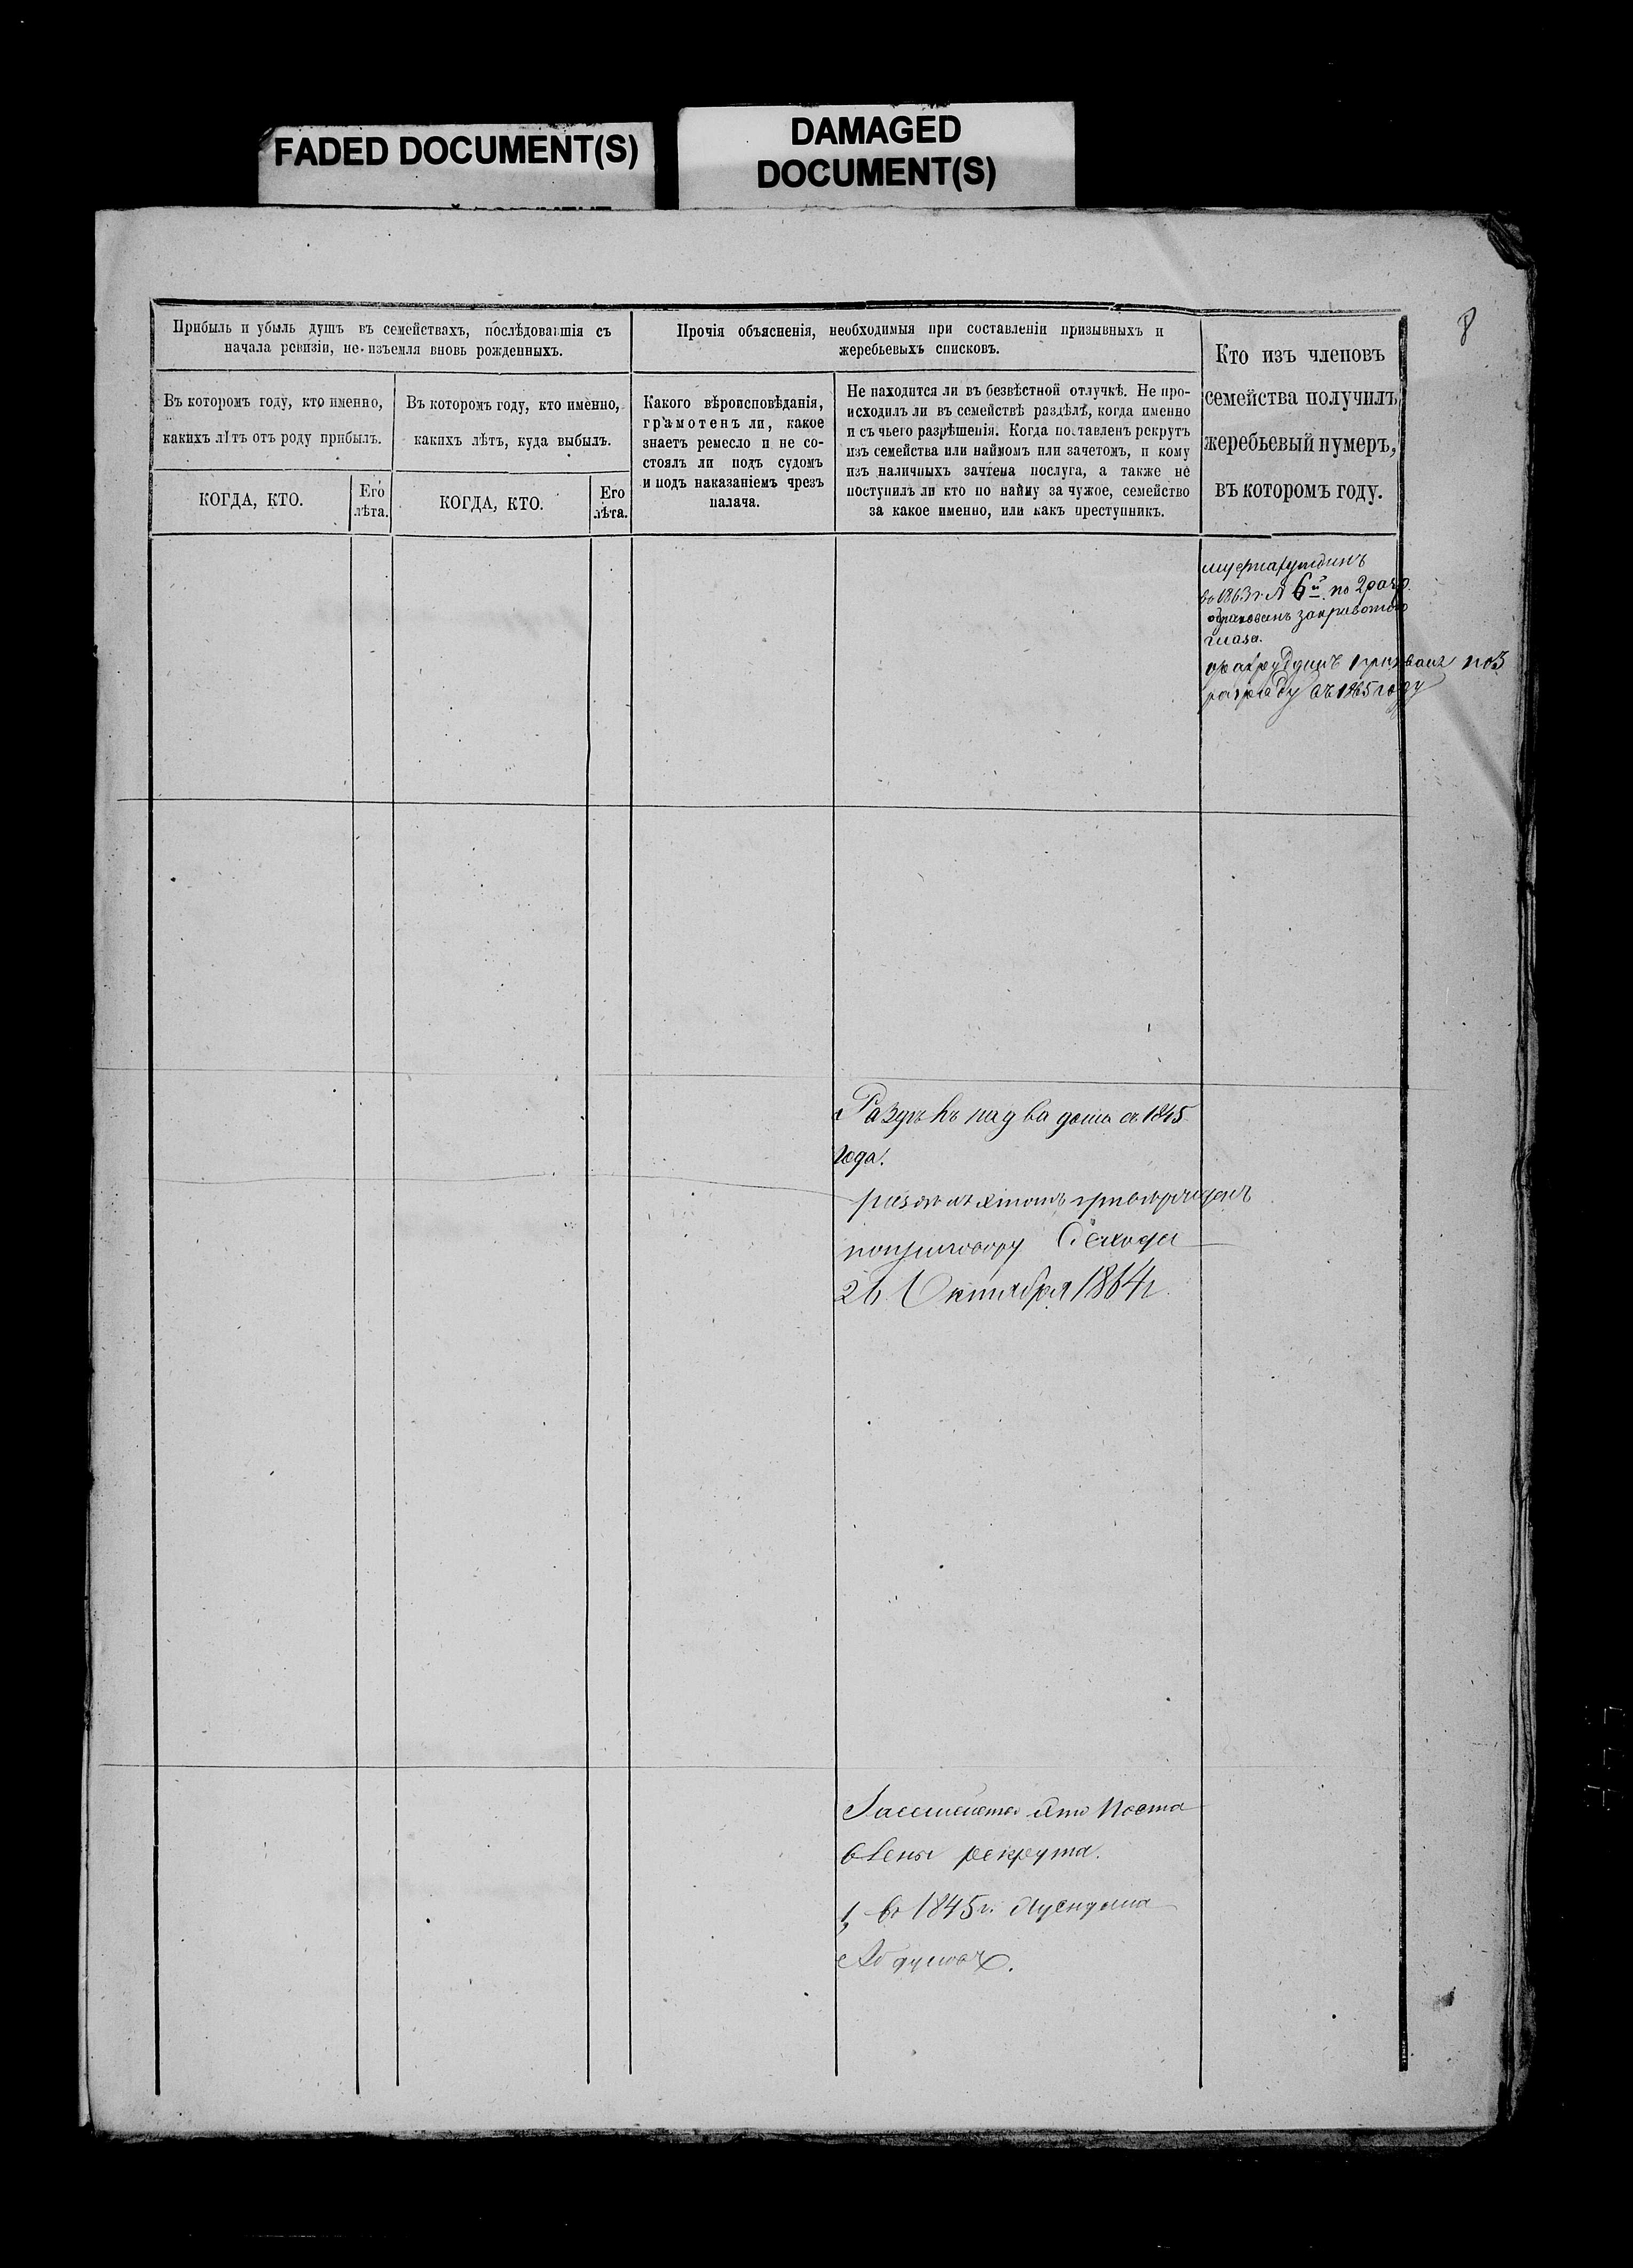 FADED DOCUMENT(S)
DAMAGED
DOCUMENT(S)
8
Прибыль и убыль душъ въ семействахъ, послѣдовавшія съ
начала ревизіи, не изъемля вновь рожденныхъ.
Въ которомъ году, кто именно,
какихъ лѣтъ отъ роду прибылъ.
КОГДА, КТО.
Его
лѣта.
Въ которомъ году, кто именно,
какихъ лѣтъ, куда выбылъ.
КОГДА, КТО.
Его
лѣта.
Прочія объясненія, необходимыя при составленіи призывныхъ и
жеребьевыхъ списковъ.
Какого вѣроисповѣданія,
грамотенъ ли, какое
знаетъ ремесло и не со-
стоялъ ли подъ судомъ
и подъ наказаніемъ чрезъ
палача.
Не находится ли въ безвѣстной отлучкѣ. Не про-
исходилъ ли въ семействѣ раздѣлъ, когда именно
и съ чьего разрѣшенія. Когда поставленъ рекрутъ
изъ семейства или наймомъ или зачетомъ, и кому
изъ наличныхъ зачтена послуга, а также не
поступилъ ли кто по найму за чужое, семейство
за какое именно, или какъ преступникъ.
Кто изъ членовъ
семейства получилъ
жеребьевый нумеръ,
въ которомъ году.
во 1863 г. 6й по 2 разр.
за кривотою
глаза.
призванъ по 3
разряду въ 1865 году
на два дома съ 1845
года.
по приговору
26 Октября 1864 г.
поста
влены рекрута.
1, во 1845 г.